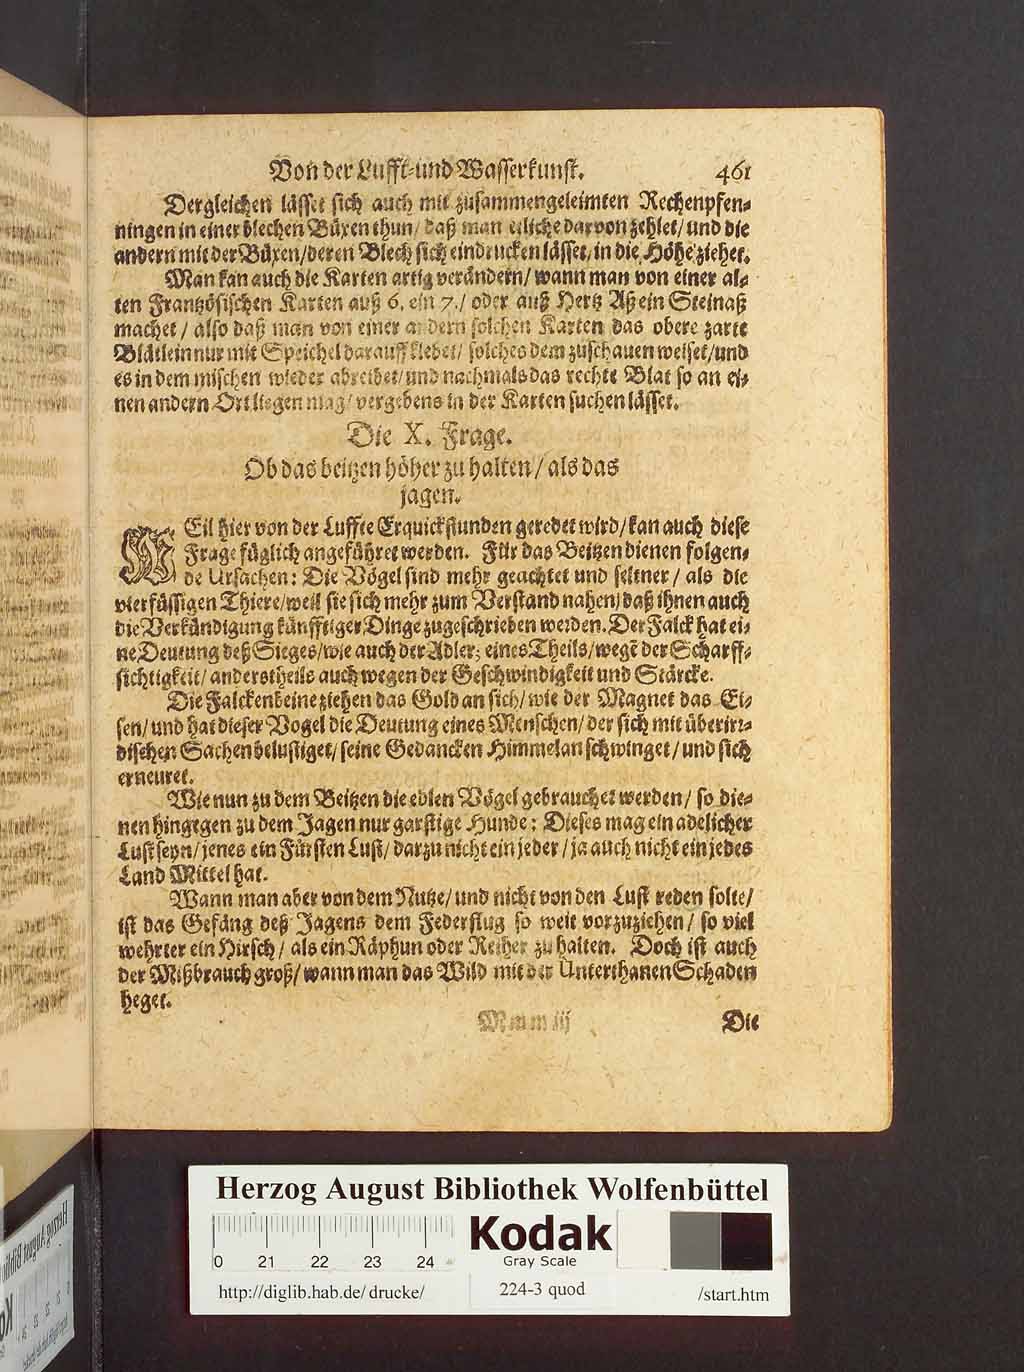 Von der Lufft-und Wasserkunst. 461
Dergleichen lässet sich auch mit zusammengeleimten Rechenpfen-
ningen in einer blechen Büxen thun/ daß man etliche darvon zehlet/ und die
andern mit der Büxen/ deren Blech sich eindrucken lässet/ in die Höhe ziehet.
Man kan auch die Karten artig verändern/ wann man von einer al-
ten Frantzösischen Karten auß 6. ein 7./ oder auß Hertz Aß ein Steinaß
machet/ also daß man von einer andern solchen Karten das obere zarte
Blätlein nur mit Speichel darauff klebet/ solches dem zuschauen weiset/ und
es in dem mischen wieder abreibet/ und nachmals das rechte Blat so an ei-
nen andern Ort liegen mag/ vergebens in der Karten suchen lässet.
Die X. Frage.
Ob das beitzen höher zu halten/ als das
jagen.
WEil hier von der Luffte Erquickstunden geredet wird/ kan auch diese
Frage füglich angeführet werden. Für das Beitzen dienen folgen-
de Ursachen: Die Vögel sind mehr geachtet und seltner/ als die
vierfüssigen Thiere/ weil sie sich mehr zum Verstand nahen/ daß ihnen auch
die Verkündigung künfftiger Dinge zugeschrieben werden. Der Falck hat ei-
ne Deutung deß Sieges/ wie auch der Adler; eines Theils/ wegē der Scharff-
sichtigkeit/ anderstheils auch wegen der Geschwindigkeit und Stärcke.
Die Falckenbeine ziehen das Gold an sich/ wie der Magnet das Ei-
sen/ und hat dieser Vogel die Deutung eines Menschen/ der sich mit überirr-
dischen Sachen belustiget/ seine Gedancken Himmelan schwinget/ und sich
erneuret.
Wie nun zu dem Beitzen die edlen Vögel gebrauchet werden/ so die-
nen hingegen zu dem Jagen nur garstige Hunde: Dieses mag ein adelicher
Lust seyn/ jenes ein Fürsten Lust/ darzu nicht ein jeder/ ja auch nicht ein jedes
Land Mittel hat.
Wann man aber von dem Nutze/ und nicht von den Lust reden solte/
ist das Gefäng deß Jagens dem Federflug so weit vorzuziehen/ so viel
wehrter ein Hirsch/ als ein Räphun oder Reiher zu halten. Doch ist auch
der Mißbrauch groß/ wann man das Wild mit der Unterthanen Schaden
heget.
Mmm iij Die
Herzog August Bibliothek Wolfenbüttel
0 21 22 23 24
Kodak
Gray Scale
http://diglib.hab.de/ drucke/ 224-3 quod /start.htm